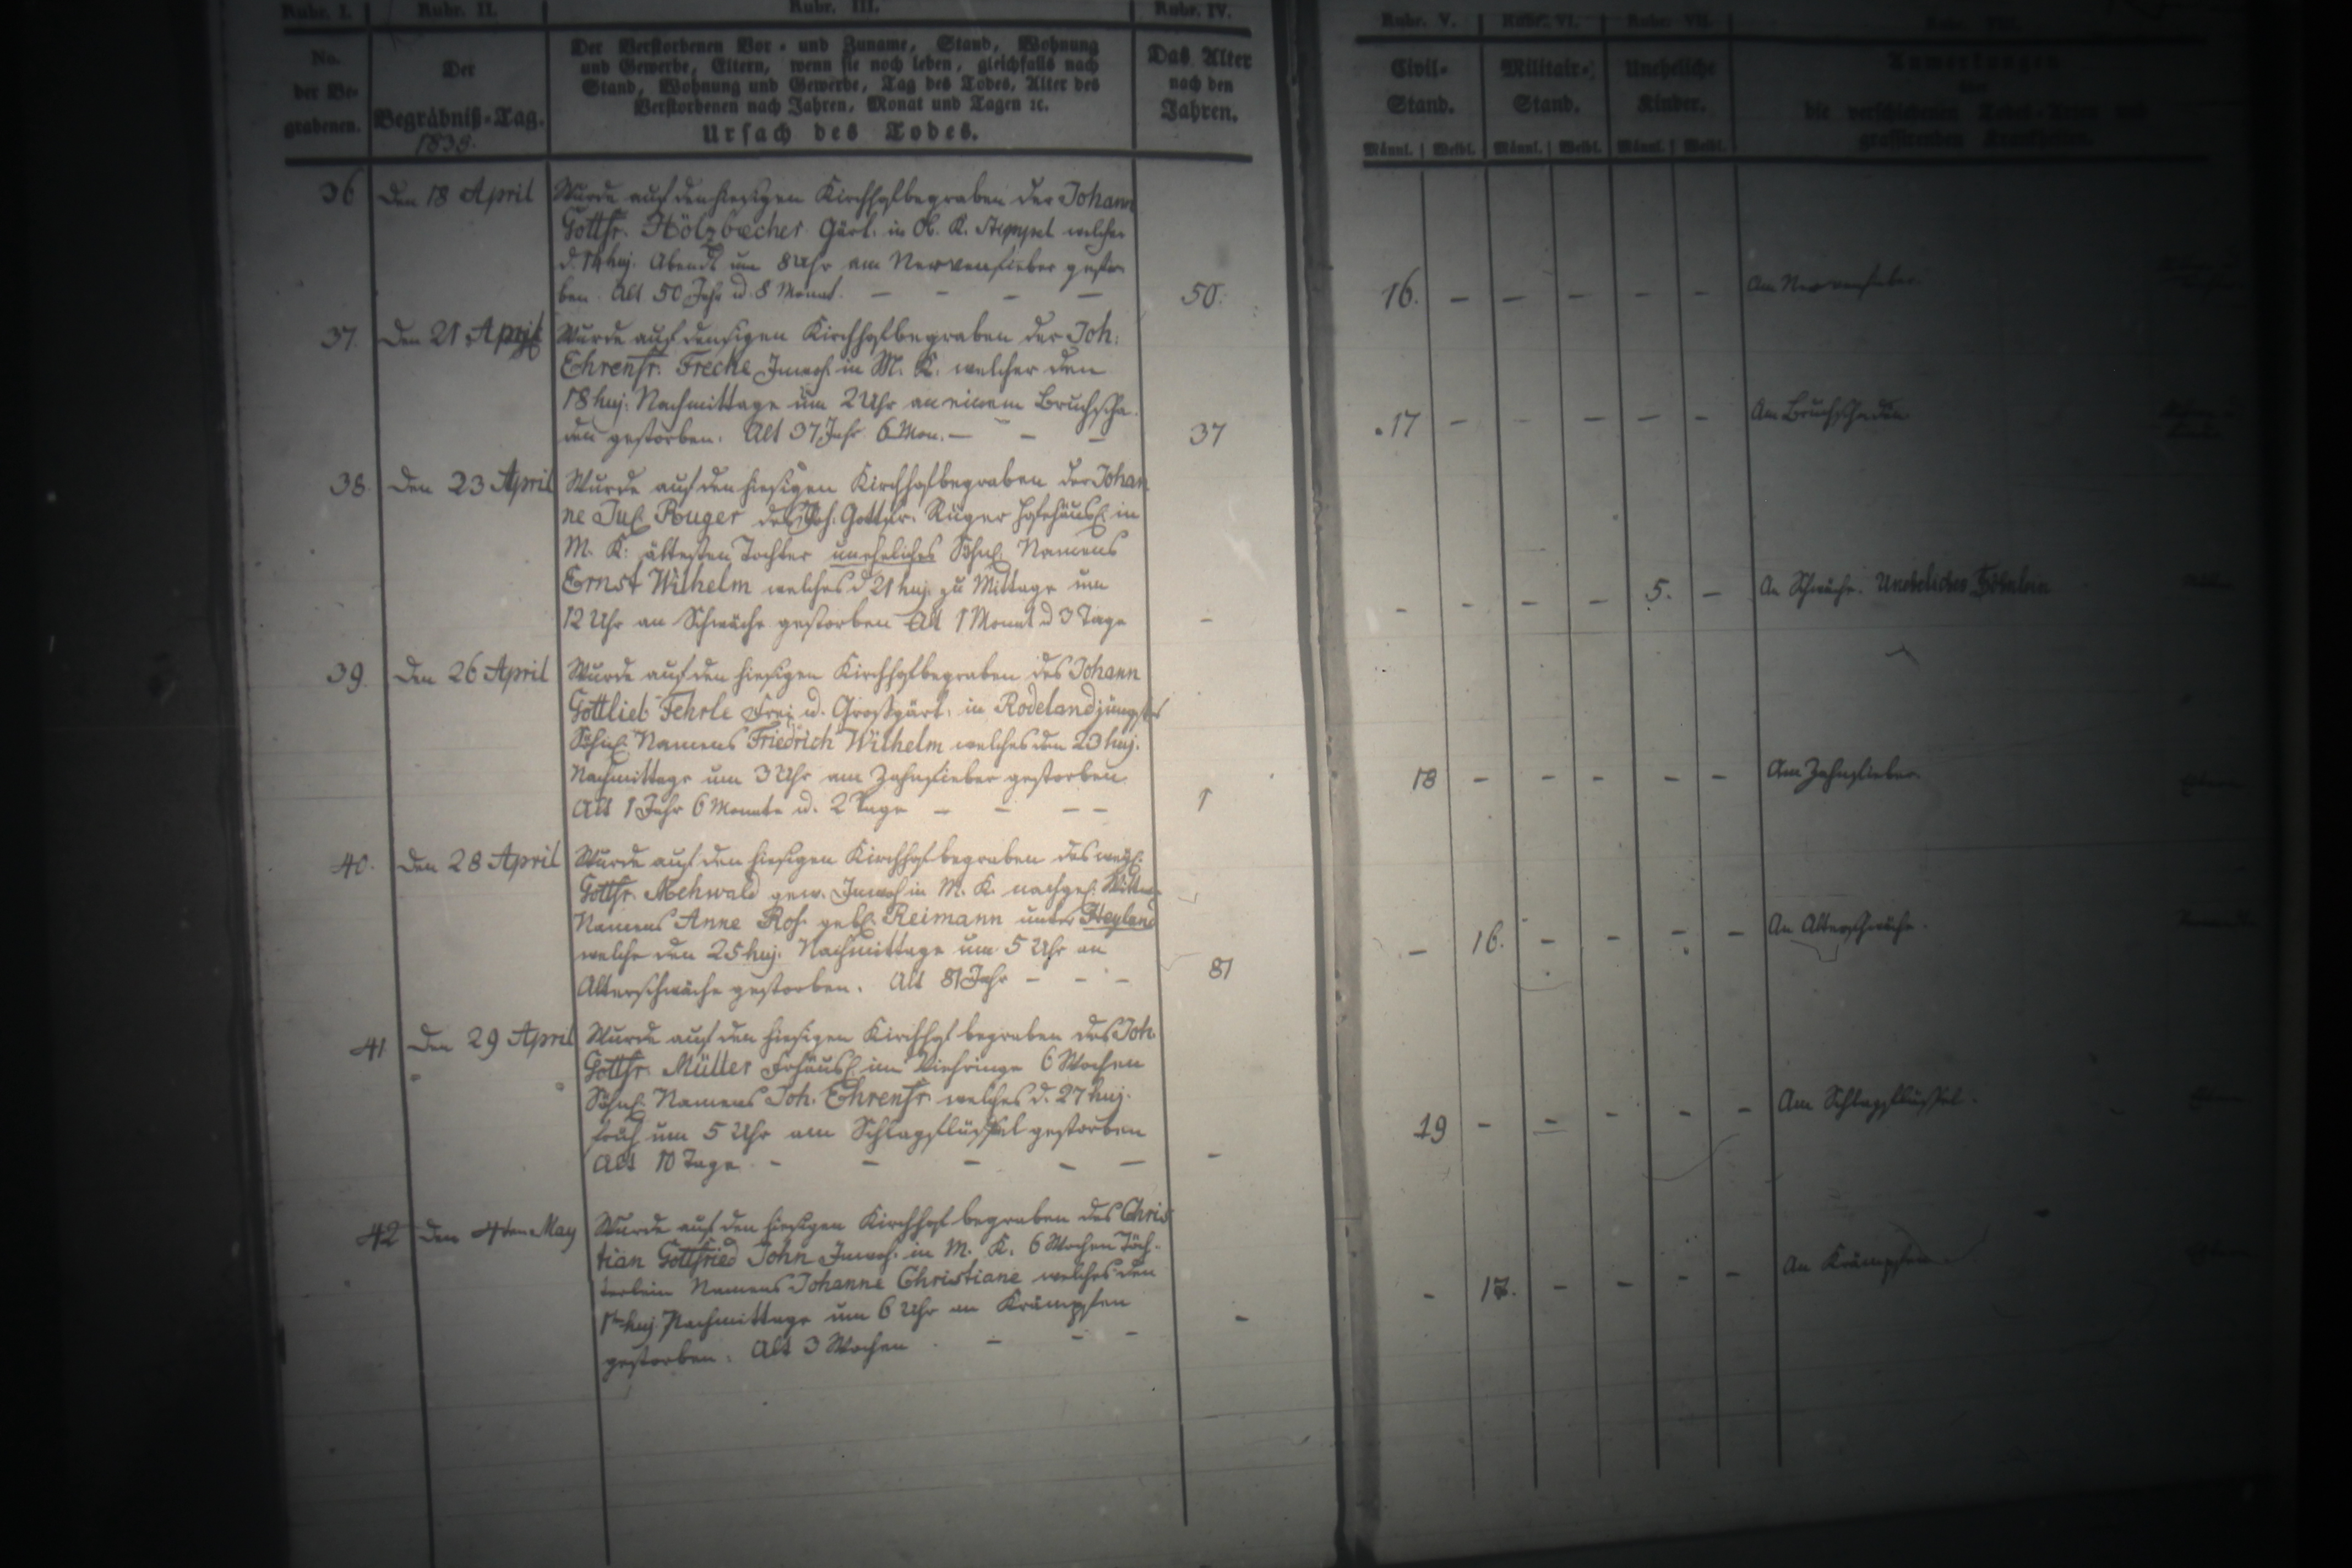 Rubr. I. Rubr. II. Rubr. III. Rubr. IV. Rubr. V. Rubr. VI. Rubr. VII. Rubr. VIII.
No. der Be-grabenen.
Der Begräbniß-Tag.
Der Verstorbenen Vor- und Zuname, Stand, Wohnung
und Gewerbe, Eltern, wenn sie noch leben, gleichfalls nach
Stand, Wohnung und Gewerbe, Tag des Todes, Alter des
Verstorbenen nach Jahren, Monat und Tagen ꝛc.
Ursach des Todes.
Das Alter
nach den
Jahren.
Civil-Stand.
Militair-Stand.
Uneheliche Kinder.
Anmerkungen
über
die verschiedenen Todes-Arten und
grassirenden Krankheiten.
Männl. Weibl. Männl. Weibl. Männl. Weibl.
36 Den 18 April Wurde auf den hiesigen Kirchhof begraben der Johann
Gottfr. Hölzbecher Gärt. in welcher
d. 14 huj. Abends um 8 Uhr am Nervenfieber gestor-
ben. Alt 50 Jahr u. 8 Monat. — — — — 50. 16. — — — — — Am Nervenfieber.
37. Den 21 April Wurde auf den hiesigen Kirchhof begraben der Joh.
Ehrenfr. Freche Inwoh. in M. K. welcher den
18 huj. Nachmittage um 2 Uhr an einem Bruchscha-
den gestorben. Alt 37 Jahr 6 Mon. — — — 37 17 — — — — — Am Bruchschaden
38. Den 23 April Wurde auf den hiesigen Kirchhof begraben der Johan
ne Jul. Ruger des Joh. Gottfr. Rüger Hofehäusl. in
M. K. ältesten Tochter uneheliches Söhnl. Namens
Ernst Wilhelm welches d 21 huj. zu Mittage um
12 Uhr an Schwäche gestorben Alt 1 Monat u 3 Tage — — — — — 5. — An Schwäche. Uneheliches Söhnlein
39. Den 26 April Wurde auf den hiesigen Kirchhof begraben des Johann
Gottlieb Fehrle Frei u. Großgärt. in Rodeland jüngstes
Söhnl. Namens Friedrich Wilhelm welches den 23 huj.
Nachmittage um 3 Uhr am Zahnfieber gestorben.
Alt 1 Jahr 6 Monate u. 2 Tage — — — — 1 18 — — — — — Am Zahnfieber
40. Den 28 April Wurde auf den hiesigen Kirchhof begraben des weyl.
Gottfr. Mehwald gew. Inwoh in M. K. nachgel. Wittwe
Namens Anne Ros. gebl. Reimann unter
welche den 25 huj. Nachmittage um 5 Uhr an
Altersschwäche gestorben. Alt 81 Jahr — — — 81 — 16. — — — — An Altersschwäche.
41 Den 29 April Wurde auf den hiesigen Kirchhof begraben des Joh.
Gottfr. Müller Frhäusl. im Viehringe 6 Wochen
Söhnl. Namens Joh. Ehrenfr. welches d. 27 huj.
früh um 5 Uhr am Schlagflüssel gestorben
Alt 10 Tage. — — — — — — 19 — — — — — Am Schlagflüssel.
42 Den 4ten May Wurde auf den hiesigen Kirchhof begraben des Chris
tian Gottfried John Inwoh. in M. K. 6 Wochen Töch-
terlein Namens Johanne Christiane welches den
1ten huj. Nachmittage um 6 Uhr an Krämpfen
gestorben. Alt 3 Wochen. — — — — — 17. — — — — An Krämpfen.